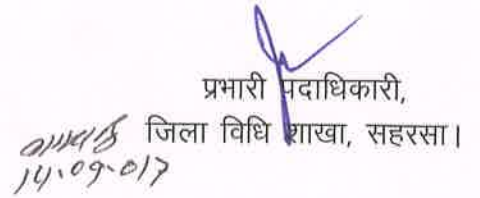 प्रभारी पदाधिकारी,
जिला विधि शाखा, सहरसा।
14.09.017